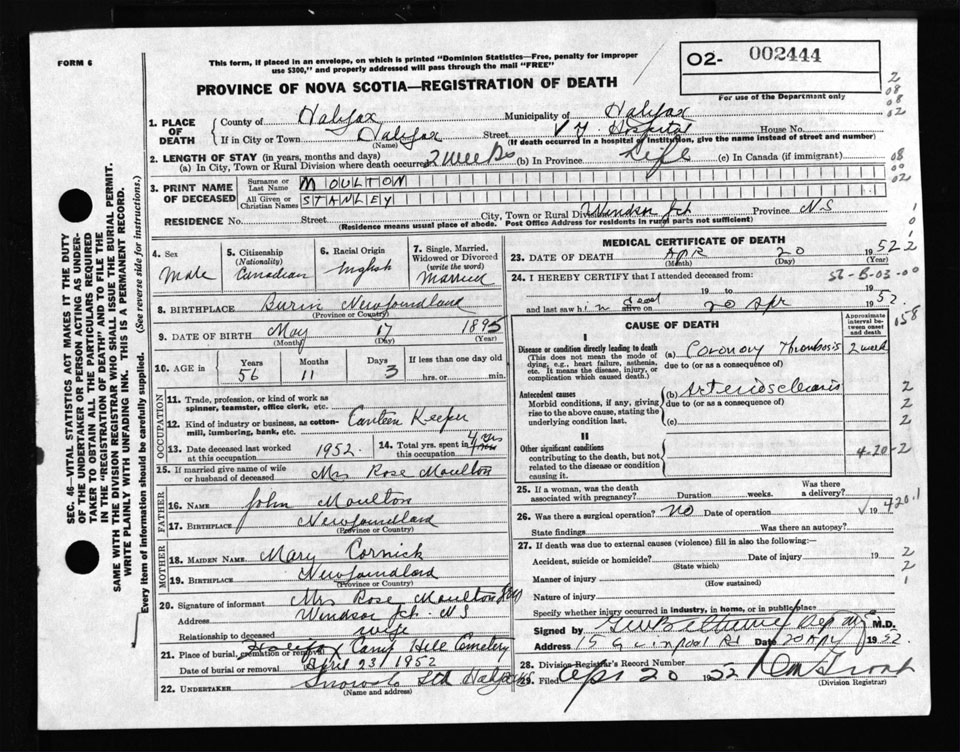 FORM 6
This form, if placed in an envelope, on which is printed "Dominion Statistics—Free, penalty for improper
use $300," and properly addressed will pass through the mail "FREE"
02- 002444
For use of the Department only
PROVINCE OF NOVA SCOTIA—REGISTRATION OF DEATH
1. PLACE OF DEATH
County of Halifax Municipality of Halifax
If in City or Town Halifax (Name) Street Hospital House No.
(If death occurred in a hospital or institution, give the name instead of street and number)
2. LENGTH OF STAY (in years, months and days)
(a) In City, Town or Rural Division where death occurred 2 weeks (b) In Province Life (c) In Canada (if immigrant)
3. PRINT NAME OF DECEASED
Surname or Last Name MOULTON
All Given or Christian Names STANLEY
RESIDENCE No. Street City, Town or Rural Division Windsor Jct Province NS
(Residence means usual place of abode. Post Office Address for residents in rural parts not sufficient)
4. Sex Male
5. Citizenship (Nationality) Canadian
6. Racial Origin English
7. Single, Married, Widowed or Divorced (write the word) Married
8. BIRTHPLACE Burin Newfoundland
(Province or Country)
9. DATE OF BIRTH May 17 1895
(Month) (Day) (Year)
10. AGE in Years 56 Months 11 Days 3 If less than one day old hrs. or min.
OCCUPATION
11. Trade, profession, or kind of work as
spinner, teamster, office clerk, etc.
12. Kind of industry or business, as cotton-
mill, lumbering, bank, etc. Canteen Keeper
13. Date deceased last worked at this occupation 1952.
14. Total yrs. spent in this occupation 4 yrs
15. If married give name of wife
or husband of deceased Mrs Rose Moulton
FATHER
16. NAME John Moulton
17. BIRTHPLACE Newfoundland
(Province or Country)
MOTHER
18. MAIDEN NAME Mary Cornick
19. BIRTHPLACE Newfoundland
(Province or Country)
20. Signature of informant Mrs Rose Moulton
Address Windsor Jct. NS
Relationship to deceased wife
21. Place of burial, cremation or removal Camp Hill Cemetery
Date of burial or removal April 23 1952
22. UNDERTAKER Snows Ltd Halifax
(Name and address)
MEDICAL CERTIFICATE OF DEATH
23. DATE OF DEATH APR 20 1952
(Month) (Day)
24. I HEREBY CERTIFY that I attended deceased from
19 to 19
and last saw him dead alive on 20 Apr 1952.
CAUSE OF DEATH
Approximate interval between onset and death
I
Disease or condition directly leading to death
(This does not mean the mode of
dying, e.g., heart failure, asthenia,
etc. It means the disease, injury, or
complication which caused death.)
(a) Coronary Thrombosis 2 week
due to (or as a consequence of)
Antecedent causes
Morbid conditions, if any, giving
rise to the above cause, stating the
underlying condition last.
(b) Arteriosclerosis
due to (or as a consequence of)
(c)
II
Other significant conditions
contributing to the death, but not
related to the disease or condition
causing it.
4-20-2
25. If a woman, was the death
associated with pregnancy? Duration weeks. Was there a delivery?
26. Was there a surgical operation? NO Date of operation 19
State findings Was there an autopsy?
420.1
27. If death was due to external causes (violence) fill in also the following:—
Accident, suicide or homicide? Date of injury 19
(State which)
Manner of injury
(How sustained)
Nature of injury
Specify whether injury occurred in industry, in home, or in public place
Signed by M.D.
Address Date 20 Apr 1952
28. Division Registrar's Record Number
29. Filed Apr 20 1952
(Division Registrar)
SEC. 46—VITAL STATISTICS ACT MAKES IT THE DUTY
OF THE UNDERTAKER OR PERSON ACTING AS UNDER-
TAKER TO OBTAIN ALL THE PARTICULARS REQUIRED
IN THE "REGISTRATION OF DEATH" AND TO FILE THE
SAME WITH THE DIVISION REGISTRAR WHO SHALL ISSUE THE BURIAL PERMIT.
WRITE PLAINLY WITH UNFADING INK. THIS IS A PERMANENT RECORD.
Every item of information should be carefully supplied. (See reverse side for instructions.)